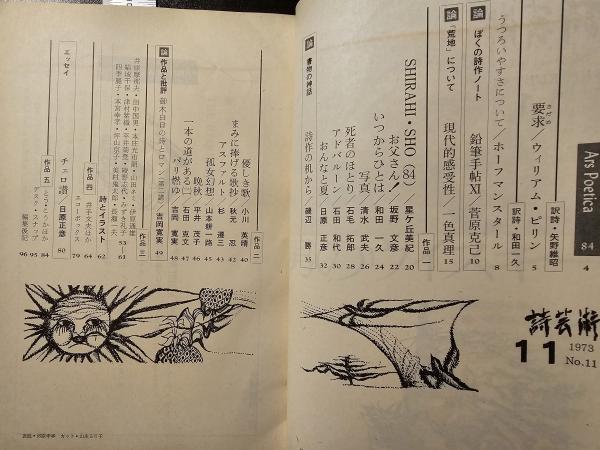 Ars Poetica
84
4
詩芸術
11
1973
No.11
訳詩・矢野維昭
要求／ウィリアム・ピリン 5
訳詩・和田一久
うつろいやすさについて／ホーフマンスタール 8
論 ぼくの詩作ノート 鉛筆手帖Ⅺ 菅原克己 10
論 「荒地」について 現代的感受性 一色真理 15
作品一
SHIRAHI・SHO（84） 星ケ丘美紀 20
お父さん！ 坂野文彦 22
いつからひとは 和田一久 24
写真 清水武夫 24
死者のほとり 石毛拓郎 26
アドバルーン 石田和代 30
おんなと夏 日原正彦 32
論 書物の神話 詩作の机から 磯辺勝 35
作品二
優しい歌 小川英晴 40
まみに捧げる歌抄 秋元忍 42
アスファルト 杉遵三 44
孤女幻想 山本耕一路 45
晩秋 平井茂子 46
一本の道がある(二) 石田克文 47
パリ燃ゆ 吉岡寛実 48
論 作品と批評 御木白日の詩とロマン〔第二講〕 吉岡寛実 49
作品三
53
61
詩とイラスト 62
作品四
井手文夫ほか 64
エコーボックス 79
エッセイ
チェロ譜 日原正彦 80
作品五
84
デスク・スナップ 95
編集後記 96